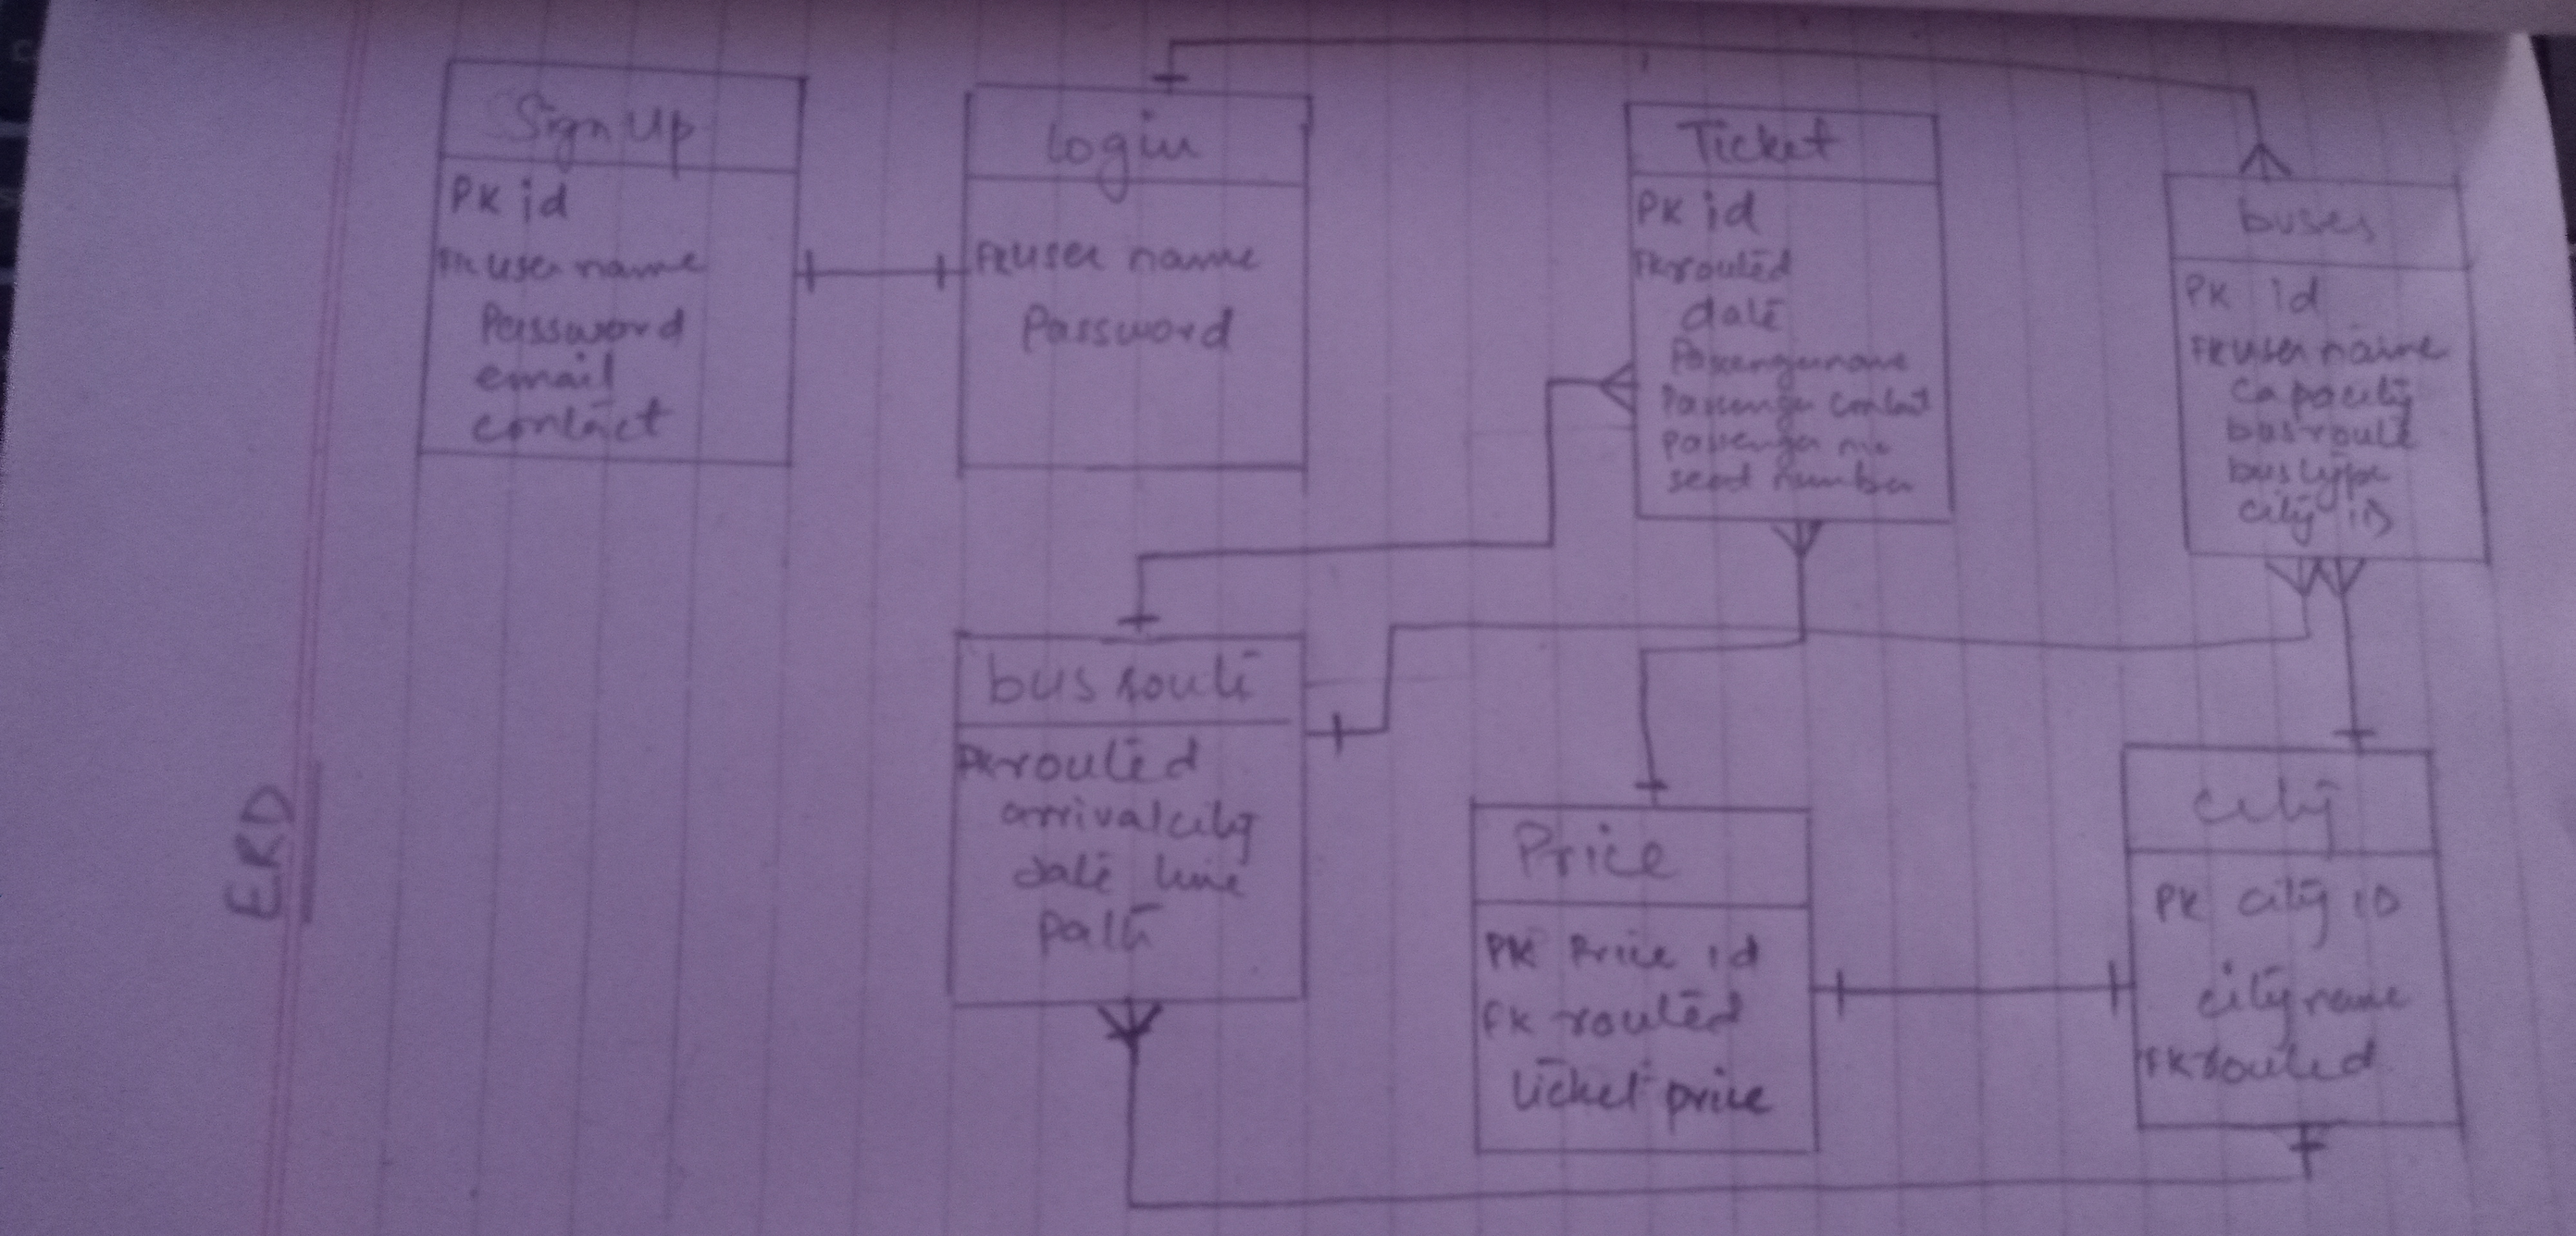 ERD
Sign Up
PK id
FK user name
Password
email
contact
login
FK user name
Password
Ticket
PK id
FK routed
date
Passengername
Passenger contact
Passenger
number
buses
PK id
FK user name
capacity
bus route
bus type
city ID
bus route
PK routed
arrival city
date time
Path
Price
PK Price id
FK routed
ticket price
city
PK city ID
city name
FK routed